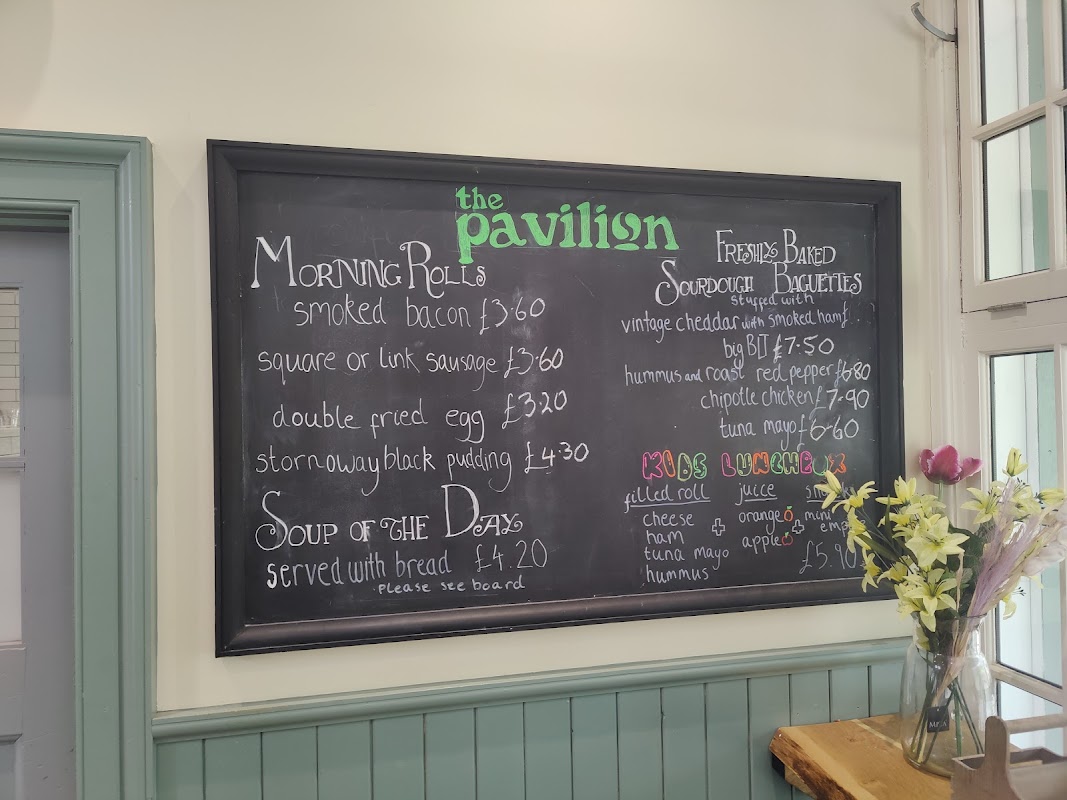 the
pavilion
Morning Rolls
smoked bacon £3.60
square or link sausage £3.60
double fried egg £3.20
stornoway black pudding £4.30
Soup of the Day
served with bread £4.20
Please see board
Freshly Baked
Sourdough Baguettes
stuffed with
vintage cheddar with smoked ham £
big BLT £7.50
hummus and roast red pepper £6.80
chipotle chicken £7.90
tuna mayo £6.60
KIDS LUNCHBOX
filled roll juice
cheese + orange + mini
ham
tuna mayo apple
hummus £5.90